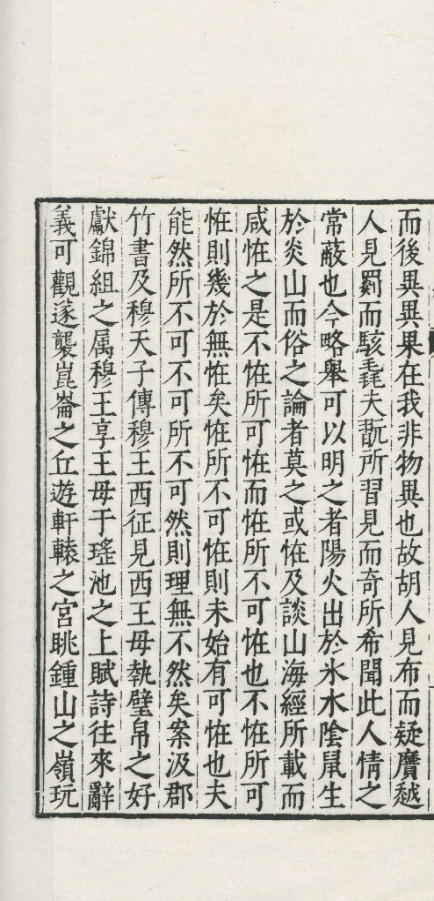 而後異異果在我非物異也故胡人見布而疑黂越
人見罽而駭毳夫翫所習見而奇所希聞此人情之
常蔽也今略舉可以明之者陽火出於氷水陰鼠生
於炎山而俗之論者莫之或恠及談山海經所載而
咸恠之是不恠所可恠而恠所不可恠也不恠所可
恠則幾於無恠矣恠所不可恠則未始有可恠也夫
能然所不可不可所不可然則理無不然矣案汲郡
竹書及穆天子傳穆王西征見西王母執璧帛之好
獻錦組之属穆王享王母于瑤池之上賦詩往來辭
義可觀遂襲崑崙之丘遊軒轅之宮眺鍾山之嶺玩